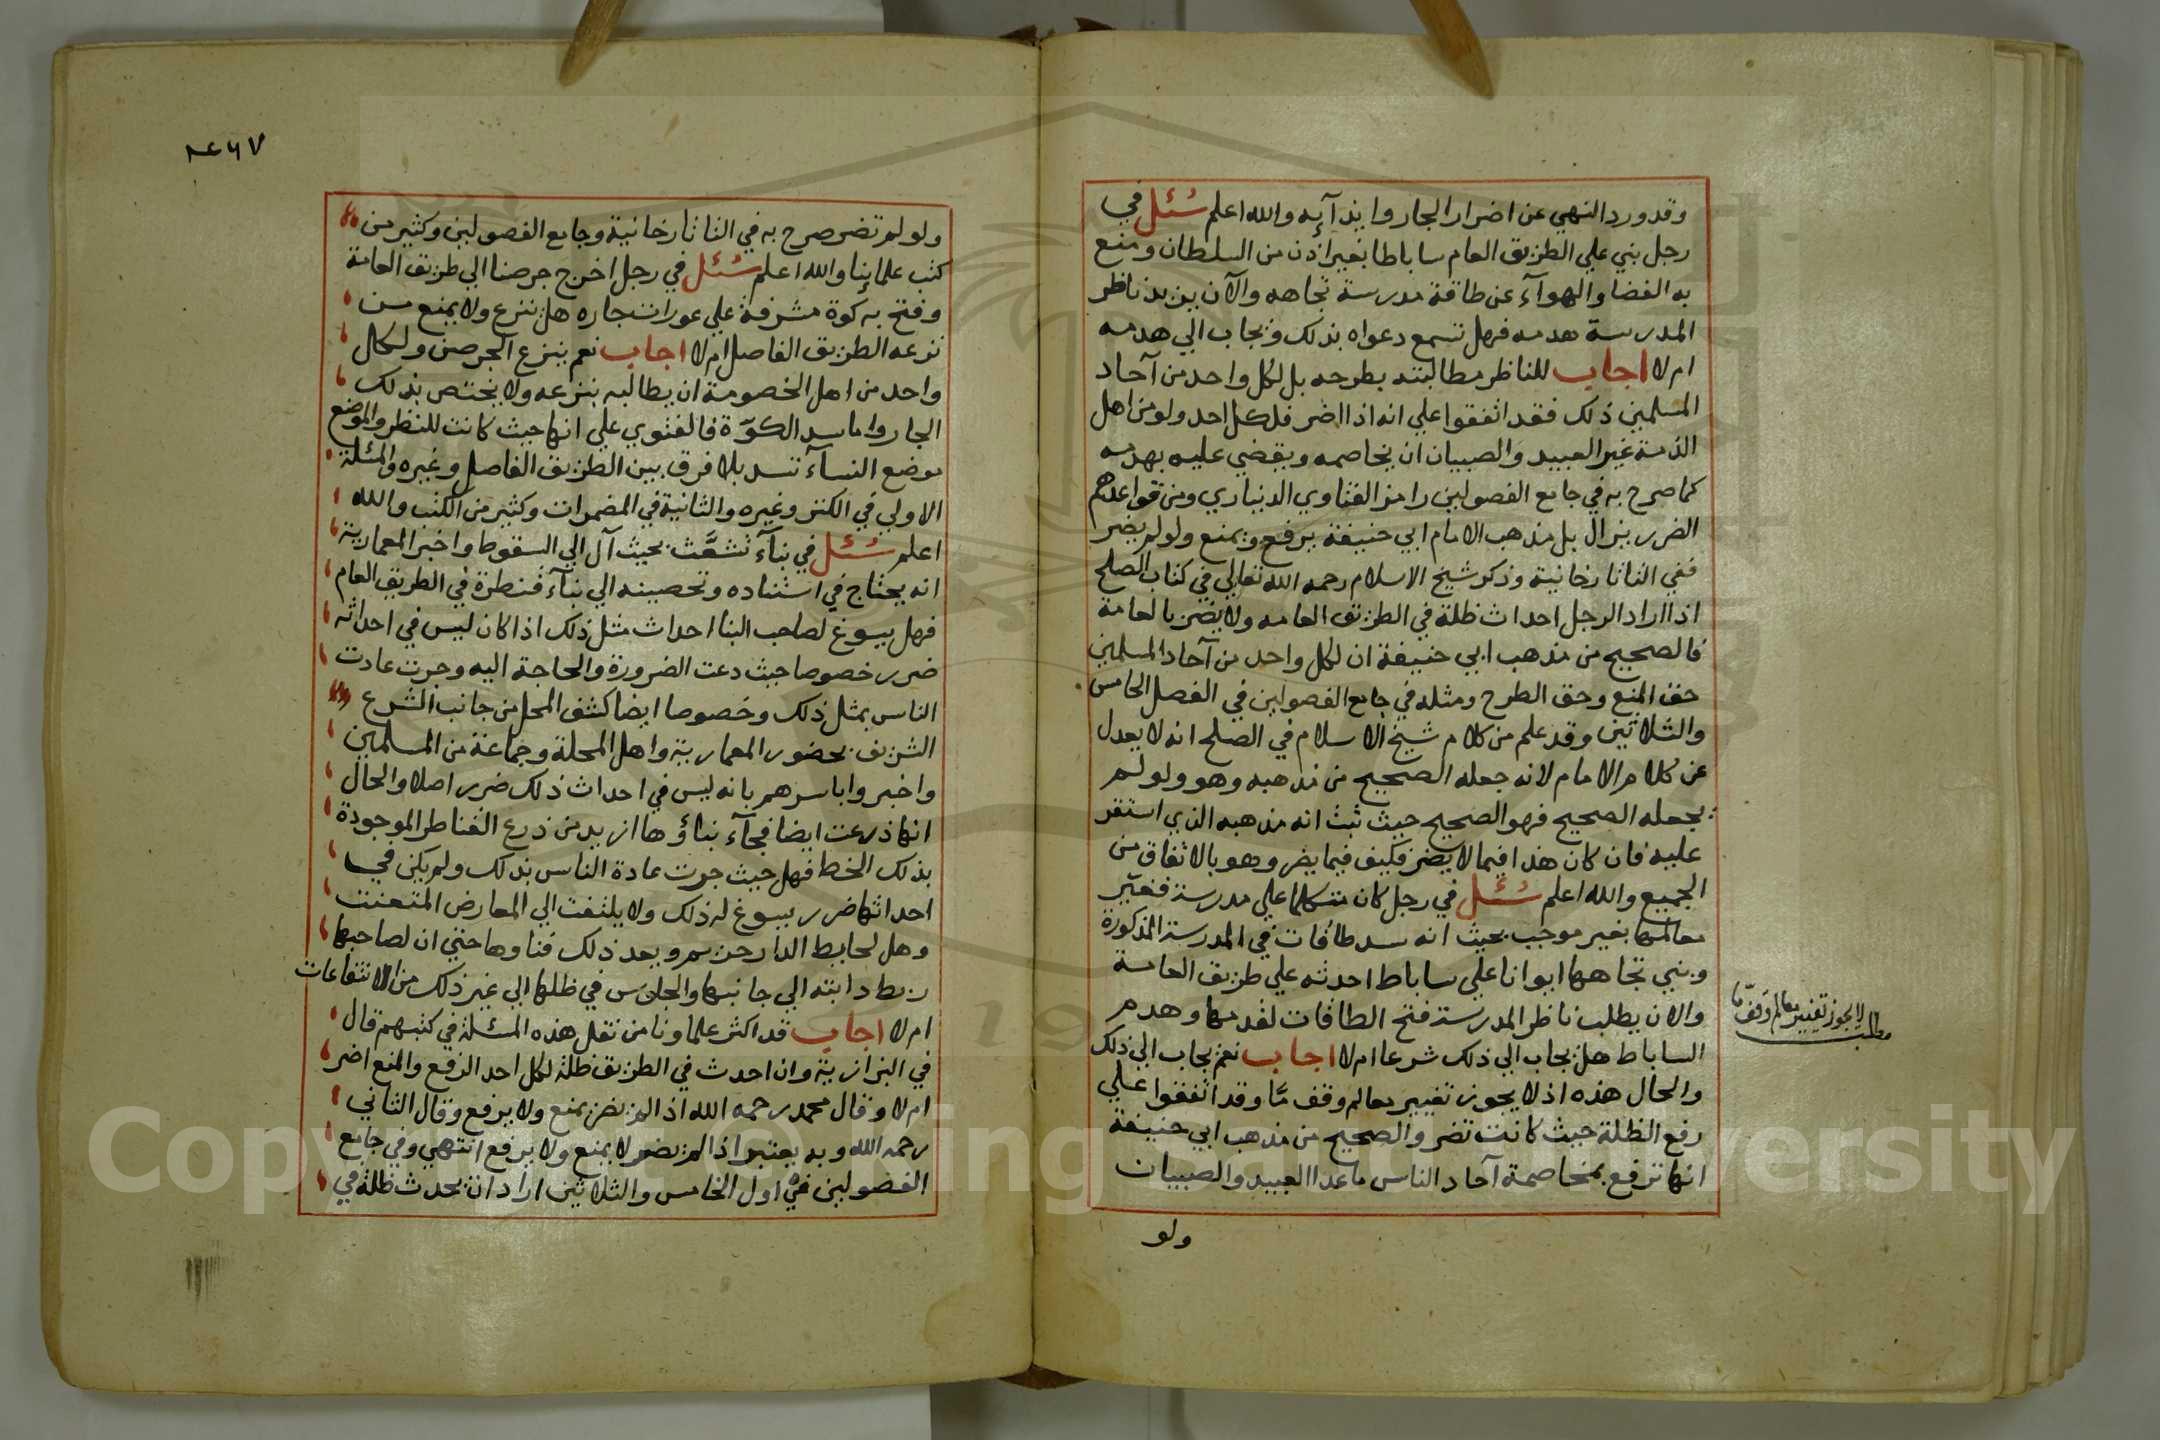 وقد ورد النهي عن اضرار الجار وايذآئه والله اعلم سئل في
رجل بني علي الطريق العام ساباطا بغير اذن من السلطان ومنع
به الفضا والهوآء عن طاقة مدرسة تجاهه والآن يريد ناظر
المدرسة هدمه فهل تسمع دعواه بذلك ويجاب الي هدمه
ام لا اجاب للناظر مطالبته بطرحه بل لكل واحد من آحاد
المسلمين ذلك فقد اتفقوا علي انه اذا اضر فلكل احد ولو من اهل
الذمة غير العبيد والصبيان ان يخاصمه ويقضي عليه بهدمه
كما صرح به في جامع الفصولين رامز الفتاوي الديناري ومن قواعدهم
الضرر يزال بل مذهب الامام ابي حنيفة يرفع ويمنع ولو لم يضر
ففي التاتارخانية وذكر شيخ الاسلام رحمه الله تعالي في كتاب الصلح
اذا اراد الرجل احداث ظلة في الطريق العامه ولا يضر بالعامة
فالصحيح من مذهب ابي حنيفة ان لكل واحد من آحاد المسلمين
حق المنع وحق الطرح ومثله في جامع الفصولين في الفصل الخامس
والثلاثين وقد علم من كلام شيخ الاسلام في الصلح انه لا يعدل
عن كلام الامام لانه جعله الصحيح من مذهبه وهو ولو لم
يجعله الصحيح فهو الصحيح حيث ثبت انه مذهبه الذي استقر
عليه فان كان هذا فيما لا يضر فكيف فيما يضر وهو بالاتفاق من
الجميع والله اعلم سئل في رجل كان متكلما علي مدرسة فغير
معالمها بغير موجب بحيث انه سد طاقات في المدرسة المذكورة
وبني تجاهها ايوانا علي ساباط احدثه علي طريق العامة
والان يطلب ناظر المدرسة فتح الطاقات لقدمها وهدم
الساباط هل يجاب الي ذلك شرعا ام لا اجاب نعم يجاب الي ذلك
والحال هذه اذ لا يجوز تغيير معالم وقف ما وقد اتفقوا علي
رفع الظلة حيث كانت تضر والصحيح من مذهب ابي حنيفة
انها ترفع بمخاصمة آحاد الناس ما عدا العبيد والصبيان
ولو
مطلب لا يجوز تغيير معالم وقف ما
ولو لم تضر صرح به في التاتارخانية وجامع الفصولين وكثير من
كتب علمائنا والله اعلم سئل في رجل اخرج جرصنا الي طريق العامة
وفتح به كوة مشرفة علي عورات جاره هل تنزع ولا يمنع من
نزعه الطريق الفاصل ام لا اجاب نعم ينزع الجرصن ولكل
واحد من اهل الخصومة ان يطالبه بنزعه ولا يختص بذلك
الجار واما سد الكوة فالفتوي علي انها حيث كانت للنظر والموضع
موضع النسآء تسد بلا فرق بين الطريق الفاصل وغيره والمسئلة
الاولي في الكنز وغيره والثانية في المضمرات وكثير من الكتب والله
اعلم سئل في بنآء تشعث بحيث آل الي السقوط واخبر المعمارية
انه يحتاج في استناده وتحصينه الي بنآء قنطرة في الطريق العام
فهل يسوغ لصاحب البنا احداث مثل ذلك اذا كان ليس في احداثه
ضرر خصوصا حيث دعت الضرورة والحاجة اليه وجرت عادت
الناس بمثل ذلك وخصوصا ايضا كشف المحل من جانب الشرع
الشريف بحضور المعمارية واهل المحلة وجماعة من المسلمين
واخبروا باسرهم بانه ليس في احداث ذلك ضرر اصلا والحال
انها ذرعت ايضا فجآء بناؤها ازيد من ذرع القناطر الموجودة
بذلك الخط فهل حيث جرت عادة الناس بذلك ولم يكن في
احداثها ضرر يسوغ له ذلك ولا يلتفت الي المعارض المتعنت
وهل لحايط الدار حريم ويعد ذلك فناوها حتي ان لصاحبها
ربط دابته الي جانبها والجلوس في ظلها الي غير ذلك من الانتفاعات
ام لا اجاب قد اكثر علماونا من نقل هذه المسئلة في كتبهم قال
في البزازية وان احدث في الطريق ظلة لكل احد الرفع والمنع اضر
ام لا وقال محمد رحمه الله اذا لم يضر يمنع ولا يرفع وقال الثاني
رحمه الله وبه يعتبر اذا لم يضر لا يمنع ولا يرفع انتهي وفي جامع
الفصولين في اول الخامس والثلاثين اراد ان يحدث ظلة في
Copyright © King Saud University